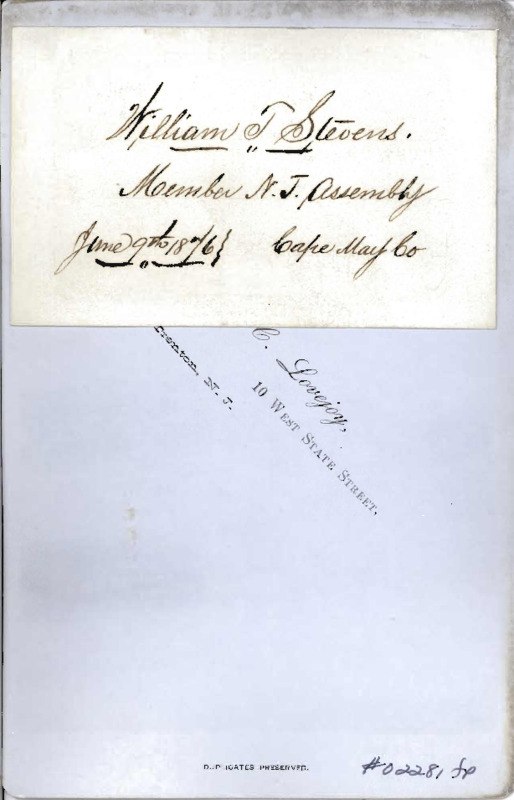 William T Stevens.
Member N. J. Assembly
June 9th 1876} Cape May Co
C. Lovejoy,
10 WEST STATE STREET.
Trenton, N. J.
DUPLICATES PRESERVED.
#02281 fp